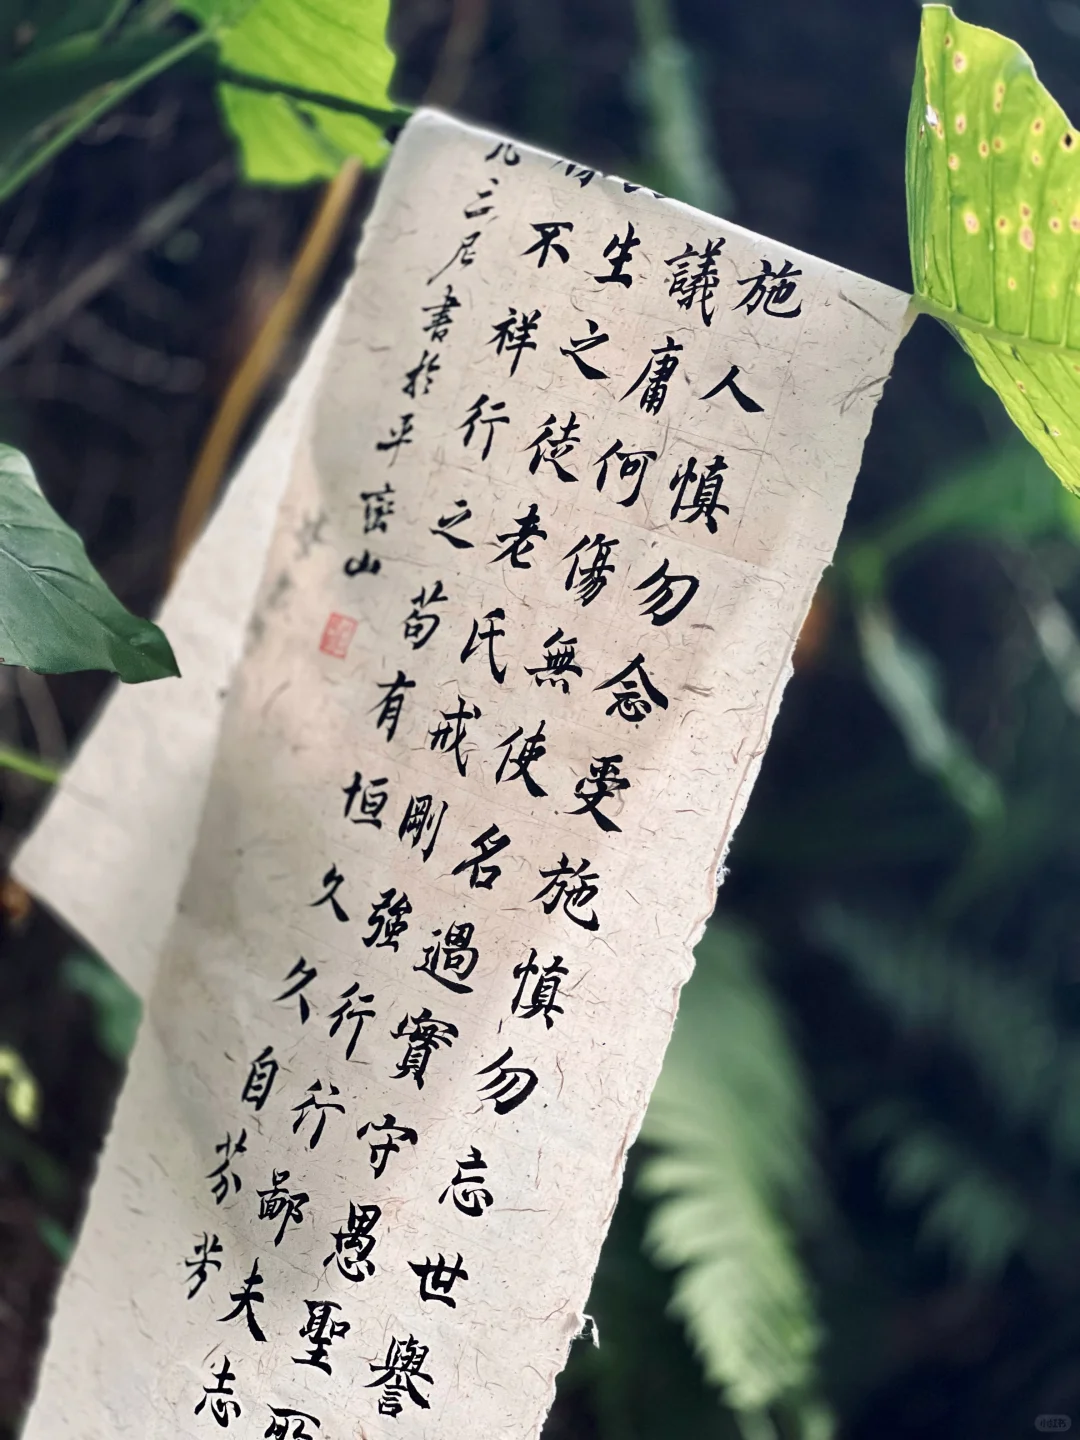 施人慎勿念受施慎勿忘世譽
議庸何傷無使名過實守愚聖所
生之徒老氏戒剛強行行鄙夫志
不祥行之苟有恒久久自芬芳
三尼書於平密山
小红书